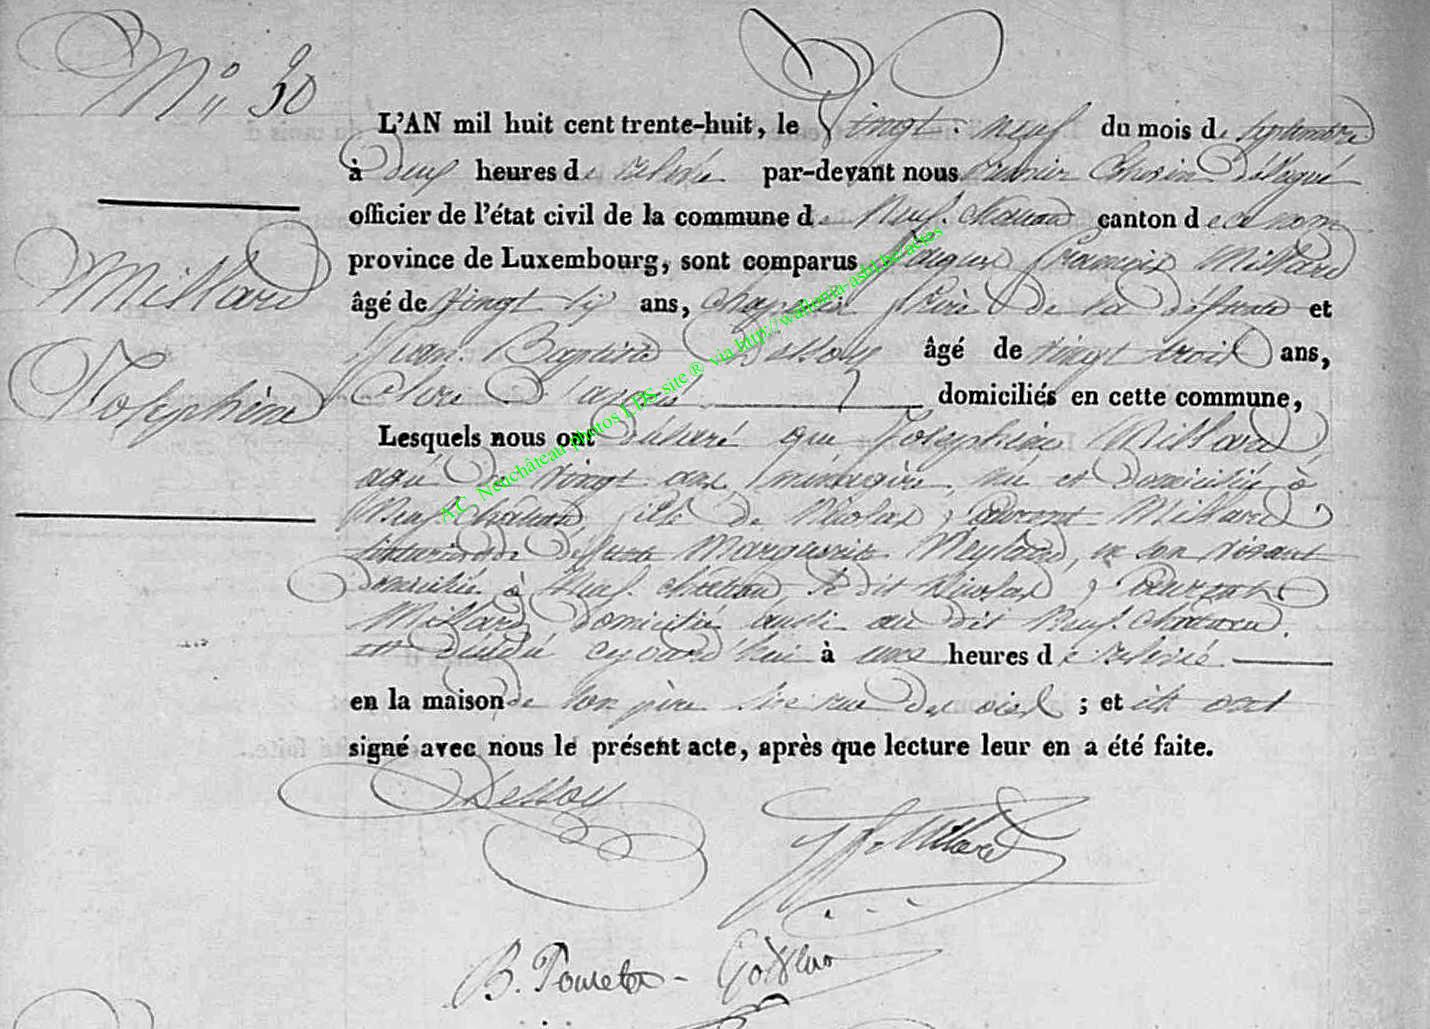 N° 30
L'AN mil huit cent trente-huit, le Vingt-neuf du mois de septembre
à deux heures de relevée par-devant nous Échevin Délégué
officier de l'état civil de la commune de Neufchateau canton de ce nom
province de Luxembourg, sont comparus François Millard
âgé de vingt six ans, frère de la défunte et
Jean Baptiste Dessoy âgé de vingt trois ans,
domiciliés en cette commune,
Lesquels nous ont déclaré que Josephine Millard
agée de vingt ans, ménagère, née et domiciliée à
Neufchateau, fille de Nicolas Laurent Millard
de défunte Marguerite, en son vivant
domiciliée à Neufchateau, le dit Nicolas Laurent
Millard domicilié aussi au dit Neufchateau.
est décédée aujourd'hui à une heures de relevée
en la maison de son père sise rue ; et ils ont
signé avec nous le présent acte, après que lecture leur en a été faite.
Millard
Josephine
Dessoy
Millard
B. Pourelet -
A.C. Neufchâteau photos LDS site ® via http://wallonia-asbl.be/actes